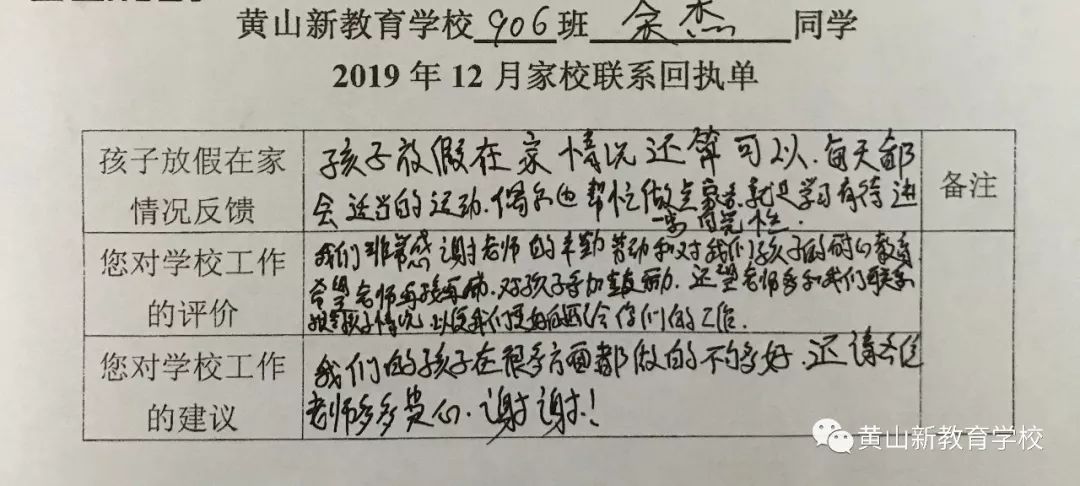 黄山新教育学校 906 班 余杰 同学
2019 年 12 月家校联系回执单
孩子放假在家
情况反馈
孩子放假在家情况还算可以.每天都
会适当的运动.偶尔也帮忙做点家务.就是学习有待进
一步
备注
您对学校工作
的评价
我们非常感谢老师的辛勤劳动和对我们孩子的耐心教育
希望老师再接再励.对孩子多加鼓励.还望老师多和我们联系
孩子情况.以便我们更好的配合你们的工作.
您对学校工作
的建议
我们的孩子在很多方面都做的不够好.还请各位
老师多多费心.谢谢!
黄山新教育学校